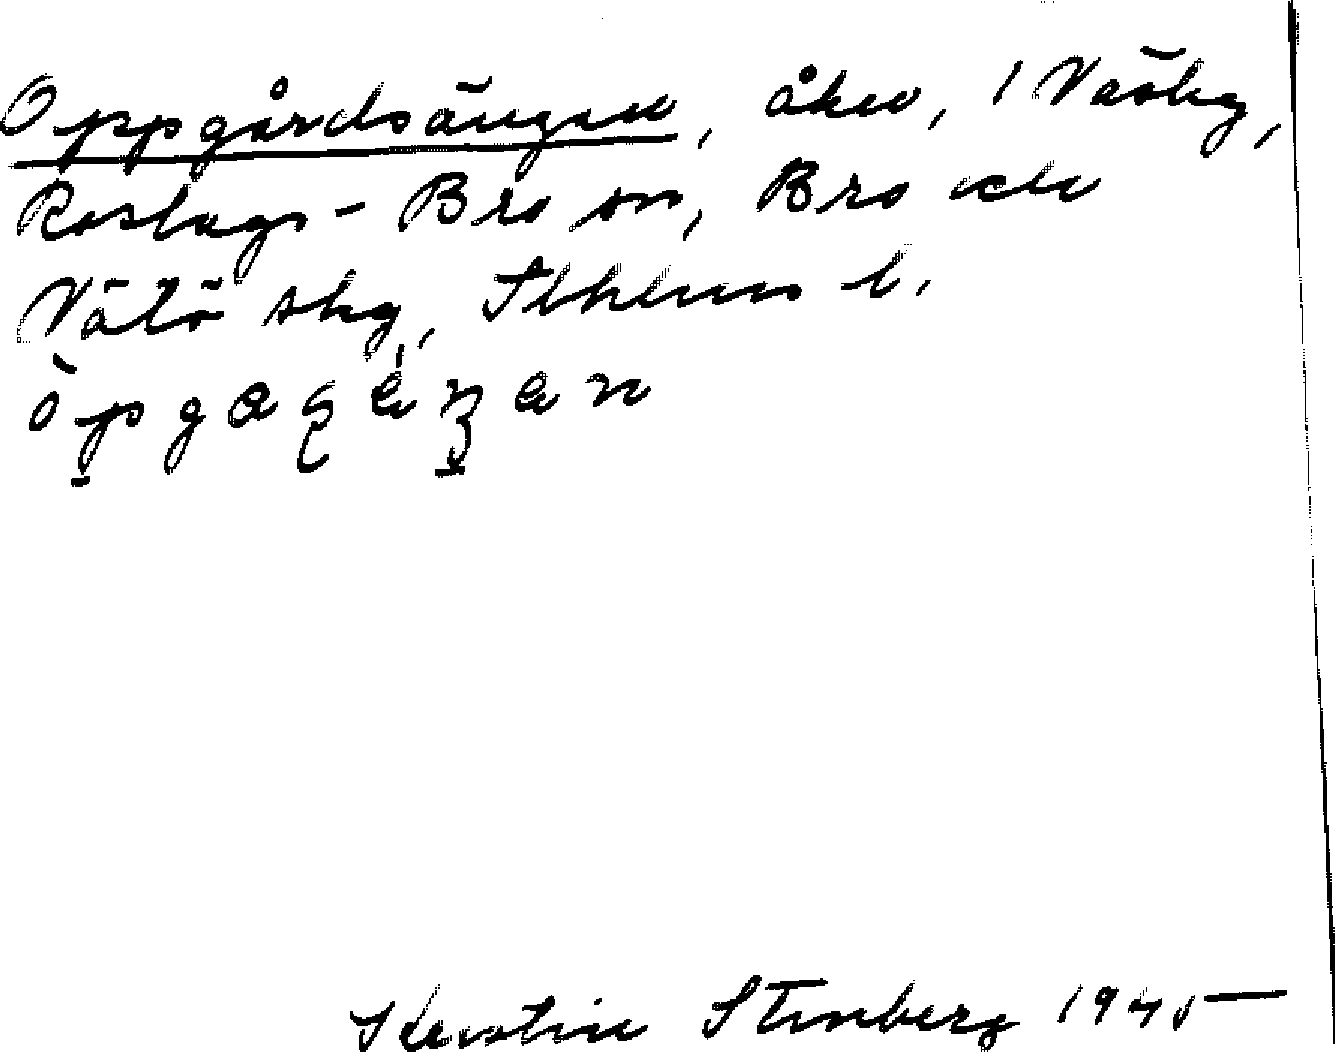 Oppgårdsängen, åker, 1 Väsby,
Roslags-Bro sn, Bro och
Vätö skg, Sthlms l.
Kerstin Stenberg 1945